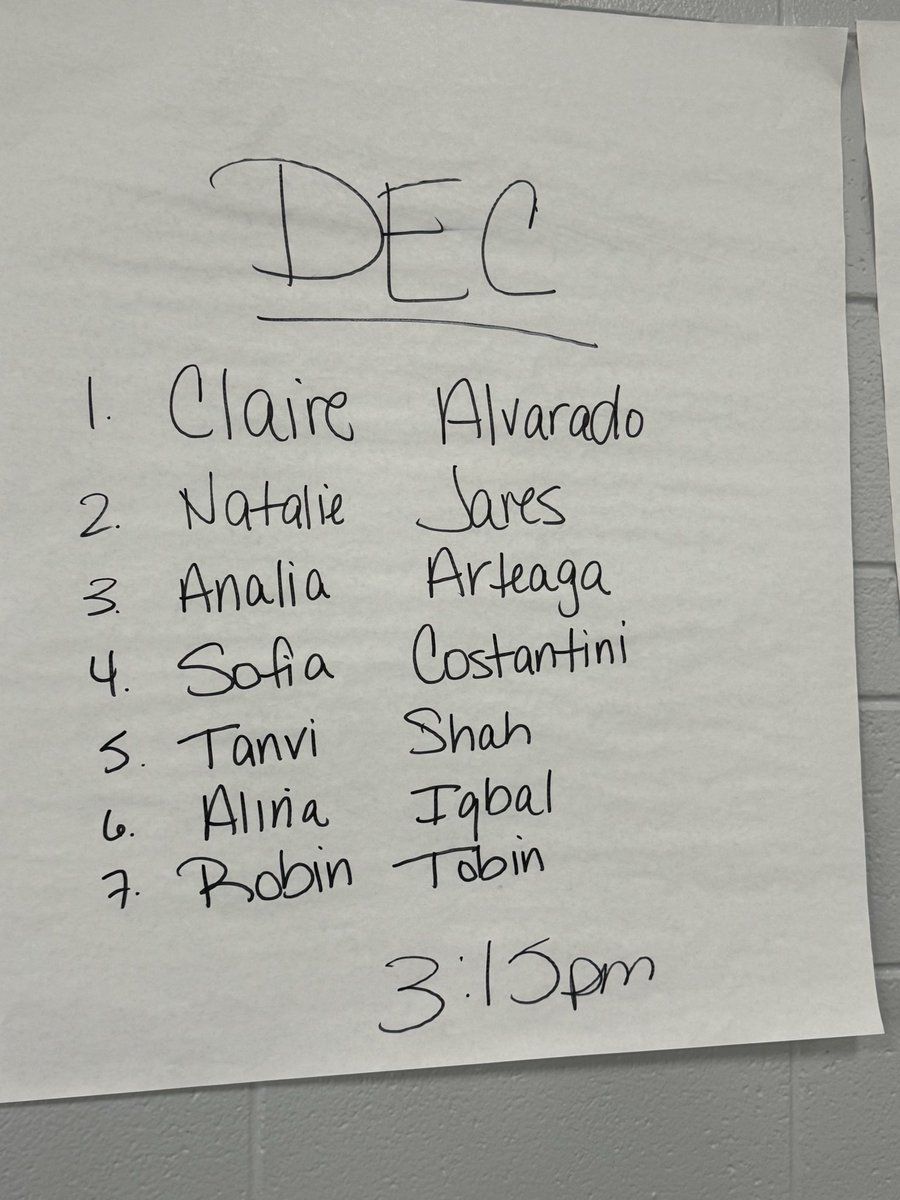 DEC
1. Claire Alvarado
2. Natalie Jares
3. Analia Arteaga
4. Sofia Costantini
5. Tanvi Shah
6. Alina Iqbal
7. Robin Tobin
3:15pm